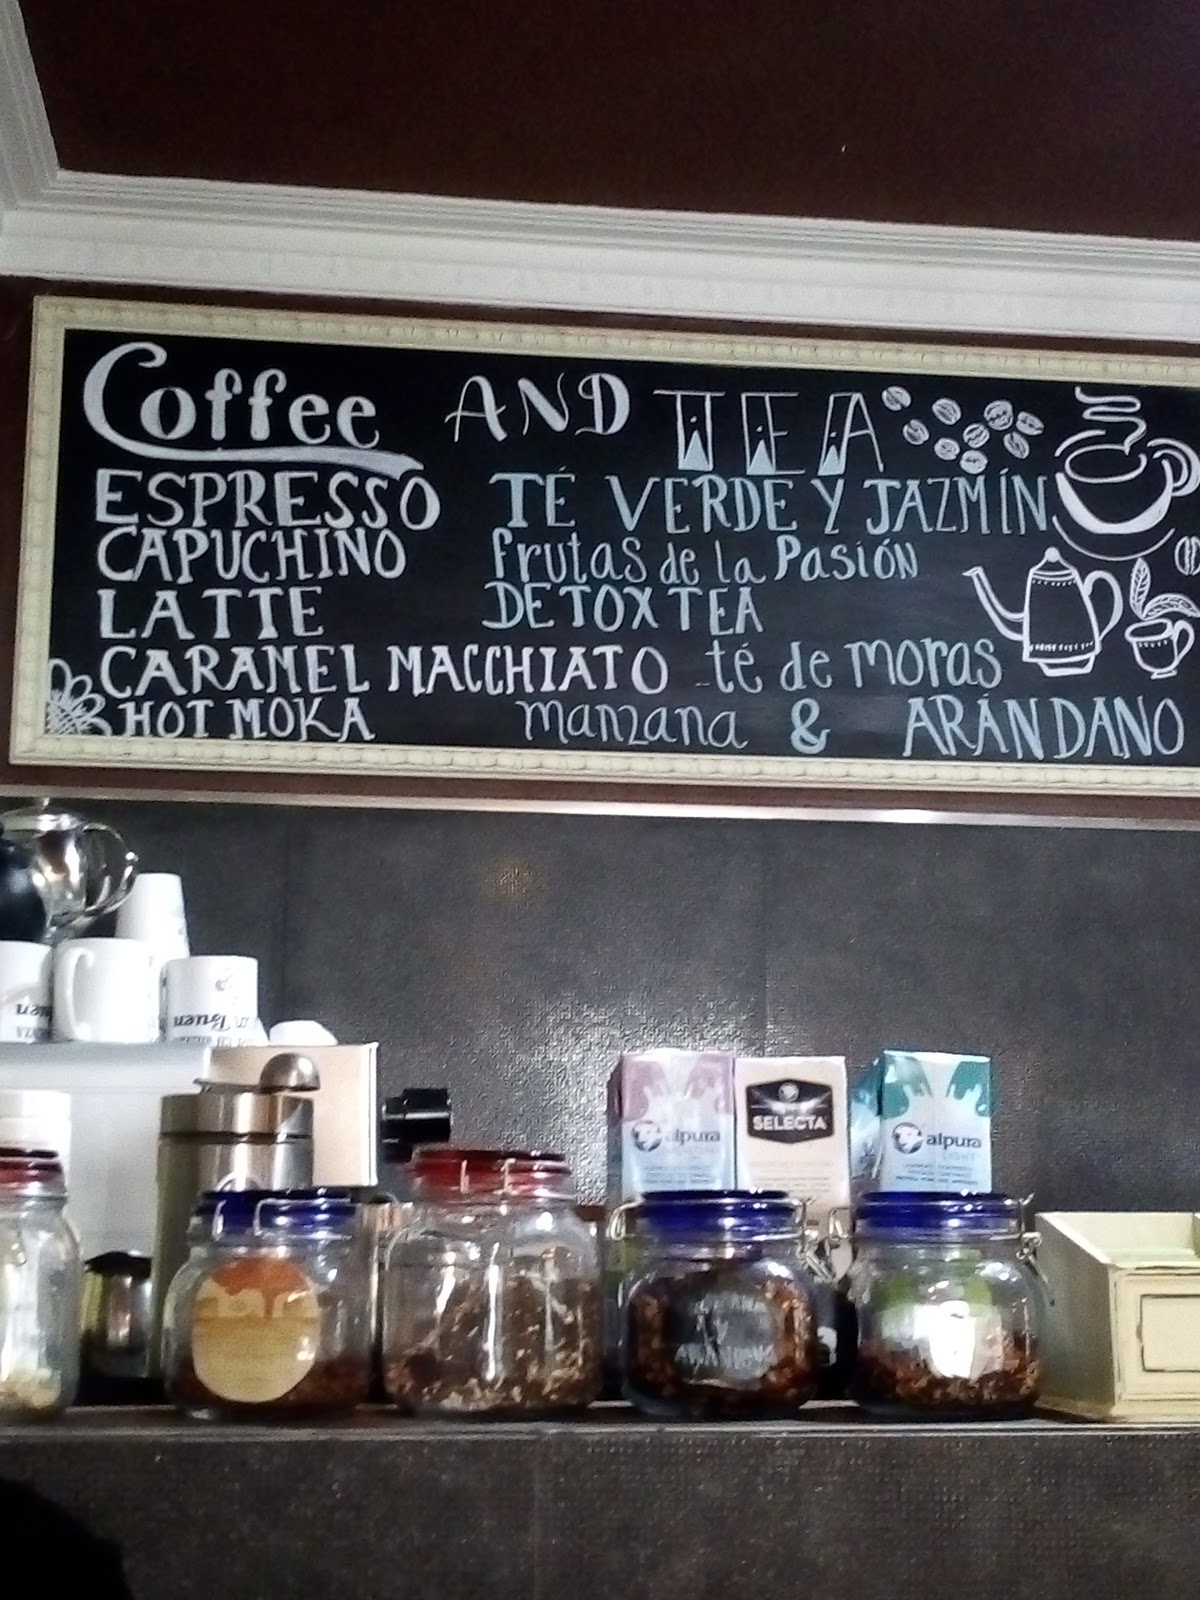 Coffee AND TEA
ESPRESSO
CAPUCHINO
LATTE
CARAMEL MACCHIATO
HOT MOKA
TÉ VERDE Y JAZMÍN
frutas de la Pasión
DETOX TEA
té de moras
manzana & ARÁNDANO
Buen
alpura
SELECTA
alpura
Y
ARÁNDANO